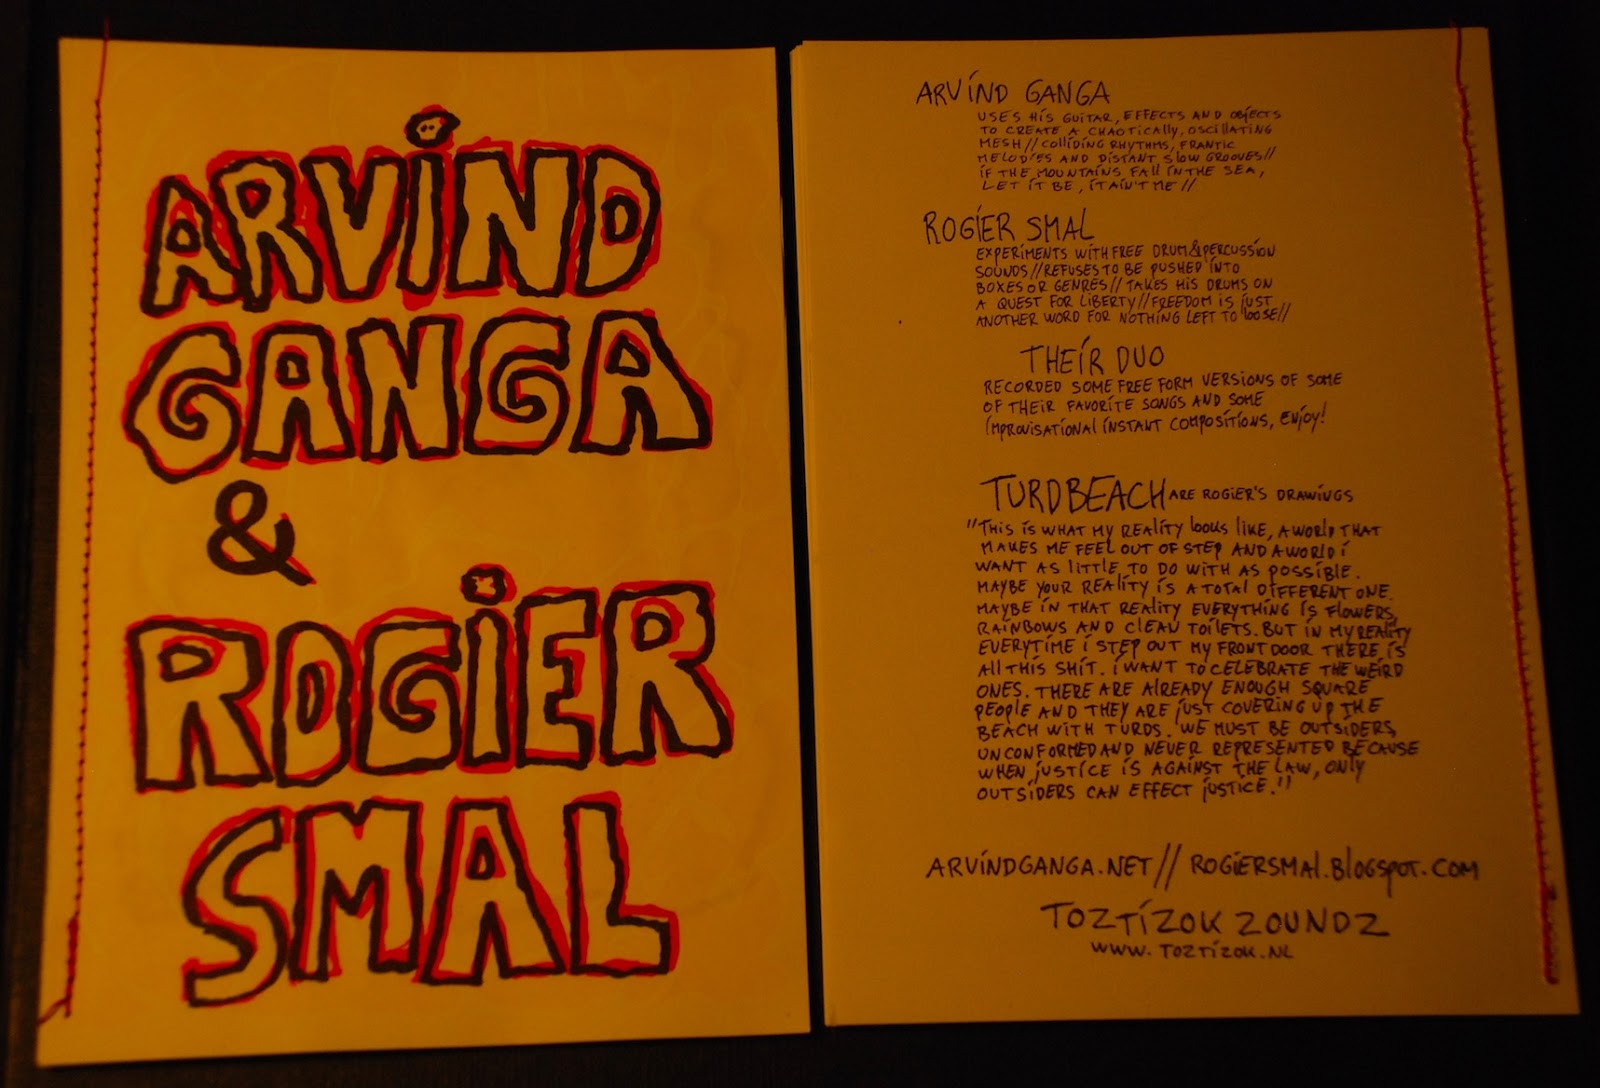 ARVIND
GANGA
&
ROGIER
SMAL
ARVIND GANGA
USES HIS GUITAR, EFFECTS AND OBJECTS
TO CREATE A CHAOTICALLY, OSCILLATING
MESH // COLLIDING RHYTHMS, FRANTIC
MELODIES AND DISTANT SLOW GROOVES //
IF THE MOUNTAINS FALL IN THE SEA,
LET IT BE, IT AIN'T ME //
ROGIER SMAL
EXPERIMENTS WITH FREE DRUM&PERCUSSION
SOUNDS // REFUSES TO BE PUSHED INTO
BOXES OR GENRES // TAKES HIS DRUMS ON
A QUEST FOR LIBERTY // FREEDOM IS JUST
ANOTHER WORD FOR NOTHING LEFT TO LOOSE //
THEIR DUO
RECORDED SOME FREE FORM VERSIONS OF SOME
OF THEIR FAVORITE SONGS AND SOME
IMPROVISATIONAL INSTANT COMPOSITIONS, ENJOY!
TURDBEACH ARE ROGIER'S DRAWINGS
"THIS IS WHAT MY REALITY LOOKS LIKE, A WORLD THAT
MAKES ME FEEL OUT OF STEP AND A WORLD I
WANT AS LITTLE TO DO WITH AS POSSIBLE.
MAYBE YOUR REALITY IS A TOTAL DIFFERENT ONE.
MAYBE IN THAT REALITY EVERYTHING IS FLOWERS,
RAINBOWS AND CLEAN TOILETS. BUT IN MY REALITY
EVERYTIME I STEP OUT MY FRONT DOOR THERE IS
ALL THIS SHIT. I WANT TO CELEBRATE THE WEIRD
ONES. THERE ARE ALREADY ENOUGH SQUARE
PEOPLE AND THEY ARE JUST COVERING UP THE
BEACH WITH TURDS. WE MUST BE OUTSIDERS,
UNCONFORMED AND NEVER REPRESENTED BECAUSE
WHEN JUSTICE IS AGAINST THE LAW, ONLY
OUTSIDERS CAN EFFECT JUSTICE."
ARVINDGANGA.NET // ROGIERSMAL.BLOGSPOT.COM
TOZTIZOK ZOUNDZ
WWW.TOZTIZOK.NL